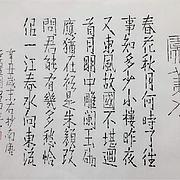 虞美人
春花秋月何時了往
事知多少小樓昨夜
又東風故國不堪迴
首月明中雕闌玉砌
應猶在只是朱顏改
問君能有幾多愁恰
似一江春水向東流